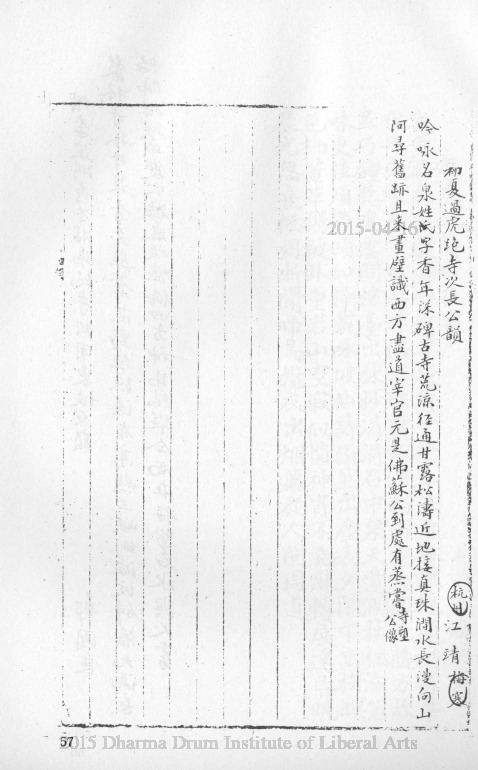 初夏過虎跑寺次長公韻
杭州 江靖 梅叟
吟咏名泉姓氏字香年深碑古寺荒涼徑通甘露松濤近地接真珠澗水長漫向山
阿尋舊跡且來畫壁識西方盡道宰官元是佛蘇公到處有蒸嘗寺塑公像
57
2015 Dharma Drum Institute of Liberal Arts